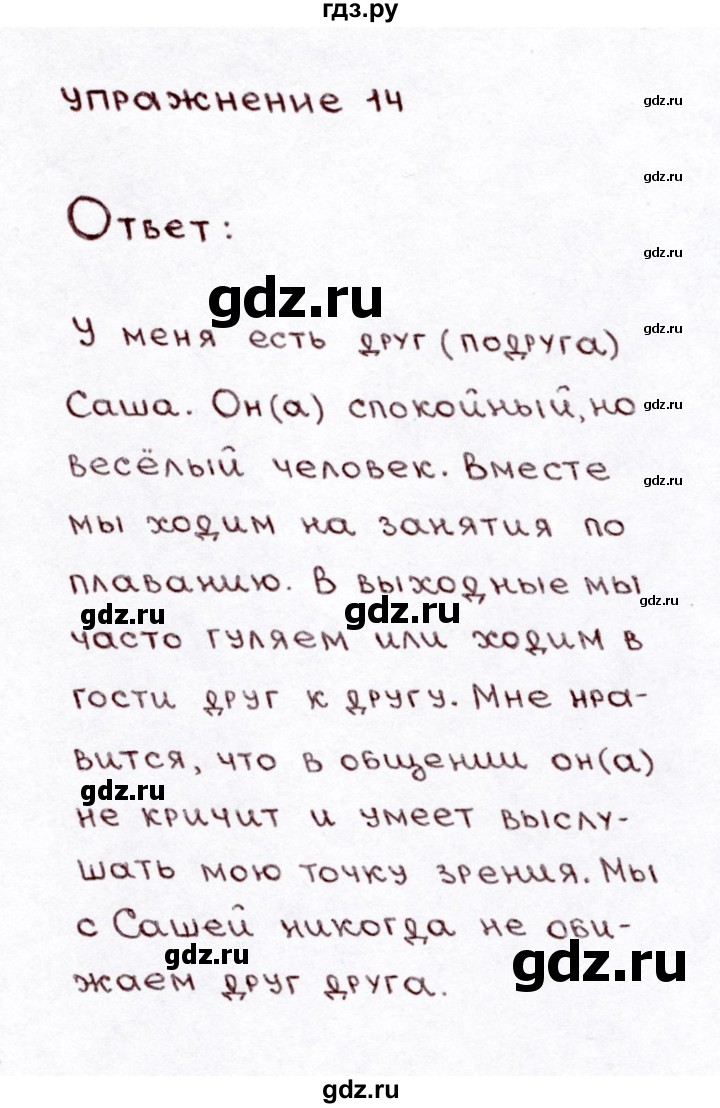 гдз.ру
упражнение 14
gdz.ru
gdz.ru
Ответ:
gdz.ru
gdz.ru
У меня есть друг (подруга)
gdz.ru
Саша. Он(а) спокойный, но
gdz.ru
весёлый человек. Вместе
gdz.ru
мы ходим на занятия по
плаванию. В выходные мы
gdz.ru
gdz.ru
gdz.ru
часто гуляем или ходим в
гости друг к другу. Мне нра-
вится, что в общении он(а)
gdz.ru
не кричит и умеет выслу-
шать мою точку зрения. Мы
с Сашей никогда не оби-
gdz.ru
gdz.ru
жаем друг друга.
gdz.ru